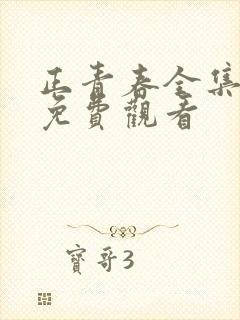 正青春全集
免費觀看
寶哥3